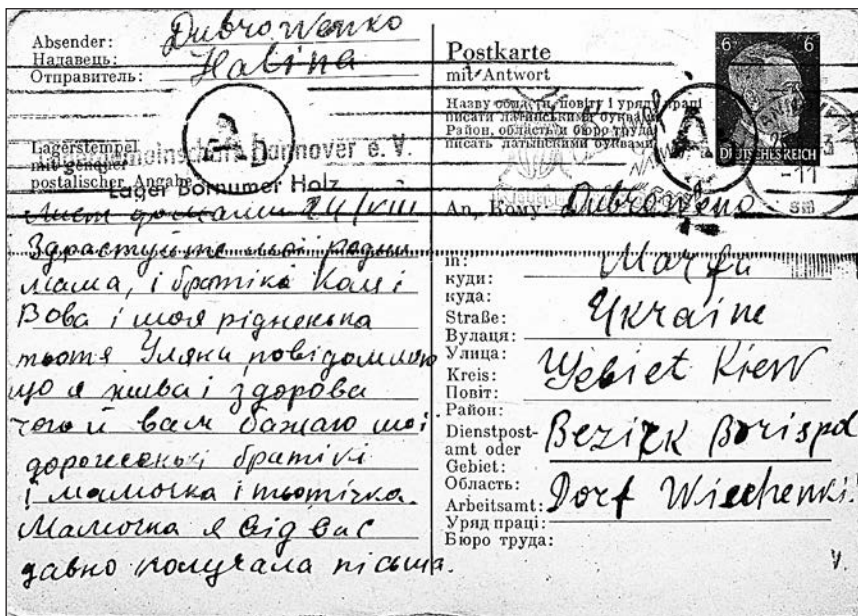 Absender:
Надавець:
Отправитель:
Dubrowenko
Halina
Lagerstempel
mit genauer
postalischer Angabe
Lagergemeinschaft Hannover e. V.
Lager Bornumer Holz
A
Лист домами 24/VIII
Здраствуйте мої родни
мама, і братікі Коля і
Вова і моя рідненька
тьотя Уляни, повідомляю
що я жива і здорова
чого й вам бажаю мої
дорогесенькі братікі
і мамочка і тьотічка.
Мамочка я від вас
давно получала пісьма.
Postkarte
mit Antwort
Назву области, повіту і уряду праці
писати латинськими буквами
Район, область и бюро труда
писать латынскими буквами
6 6
DEUTSCHES REICH
A
-11
An, Кому: Dubroweno
in:
куди:
куда:
Marfa
Straße:
Вулаця:
Улица:
Ukraine
Kreis:
Повіт:
Район:
Gebiet Kiew
Dienstpost-
amt oder
Gebiet:
Область:
Bezirk Borispol
Arbeitsamt:
Уряд праці:
Бюро труда:
Dorf